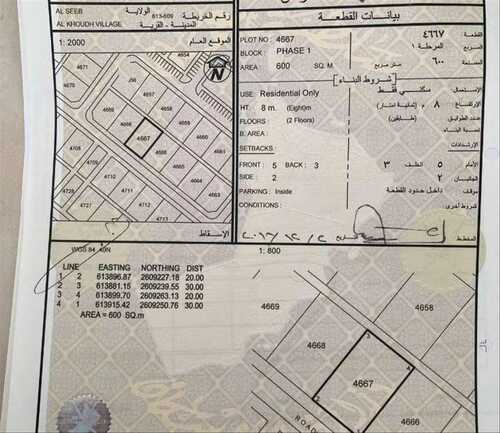 AL SEEB
الولاية
613-609
رقم الخريطة
AL KHOUDH VILLAGE
المدينة - القرية
1: 2000
الموقع العام
N
4671
J56
4670
4669
4668
4667
4666
4708
4709
4710
4711
4712
4713
4727
WGS 84 ,40N
الإسقاط
بيانات القطعة
PLOT NO : 4667
٤٦٦٧
القطعة
BLOCK : PHASE 1
المرحلة ١
المربع
AREA : 600 SQ. M.
متر مربع
٦٠٠
المساحة
شروط البناء
USE: Residential Only
سكني فقط
الإستعمال
HT: 8 m. (Eight)m
٨ م (ثمانية امتار)
الإرتفاع
FLOORS (2 Floors)
(طابقين)
عدد الطوابق
B. AREA:
نسبة البناء
SETBACKS:
الإرتدادات
FRONT : 5 BACK : 3
٥ الخلف ٣
الأمام
SIDE : 2
٢
الجانبان
PARKING : Inside
داخل حدود القطعة
المواقف
CONDITIONS :
شروط أخرى
المخطط
1: 800
LINE EASTING NORTHING DIST
1 2 613896.87 2609227.18 20.00
2 3 613881.15 2609239.55 30.00
3 4 613899.70 2609263.13 20.00
4 1 613915.42 2609250.76 30.00
AREA = 600 SQ.m
4669
4658
4668
3
4
4667
2
4666
ROAD